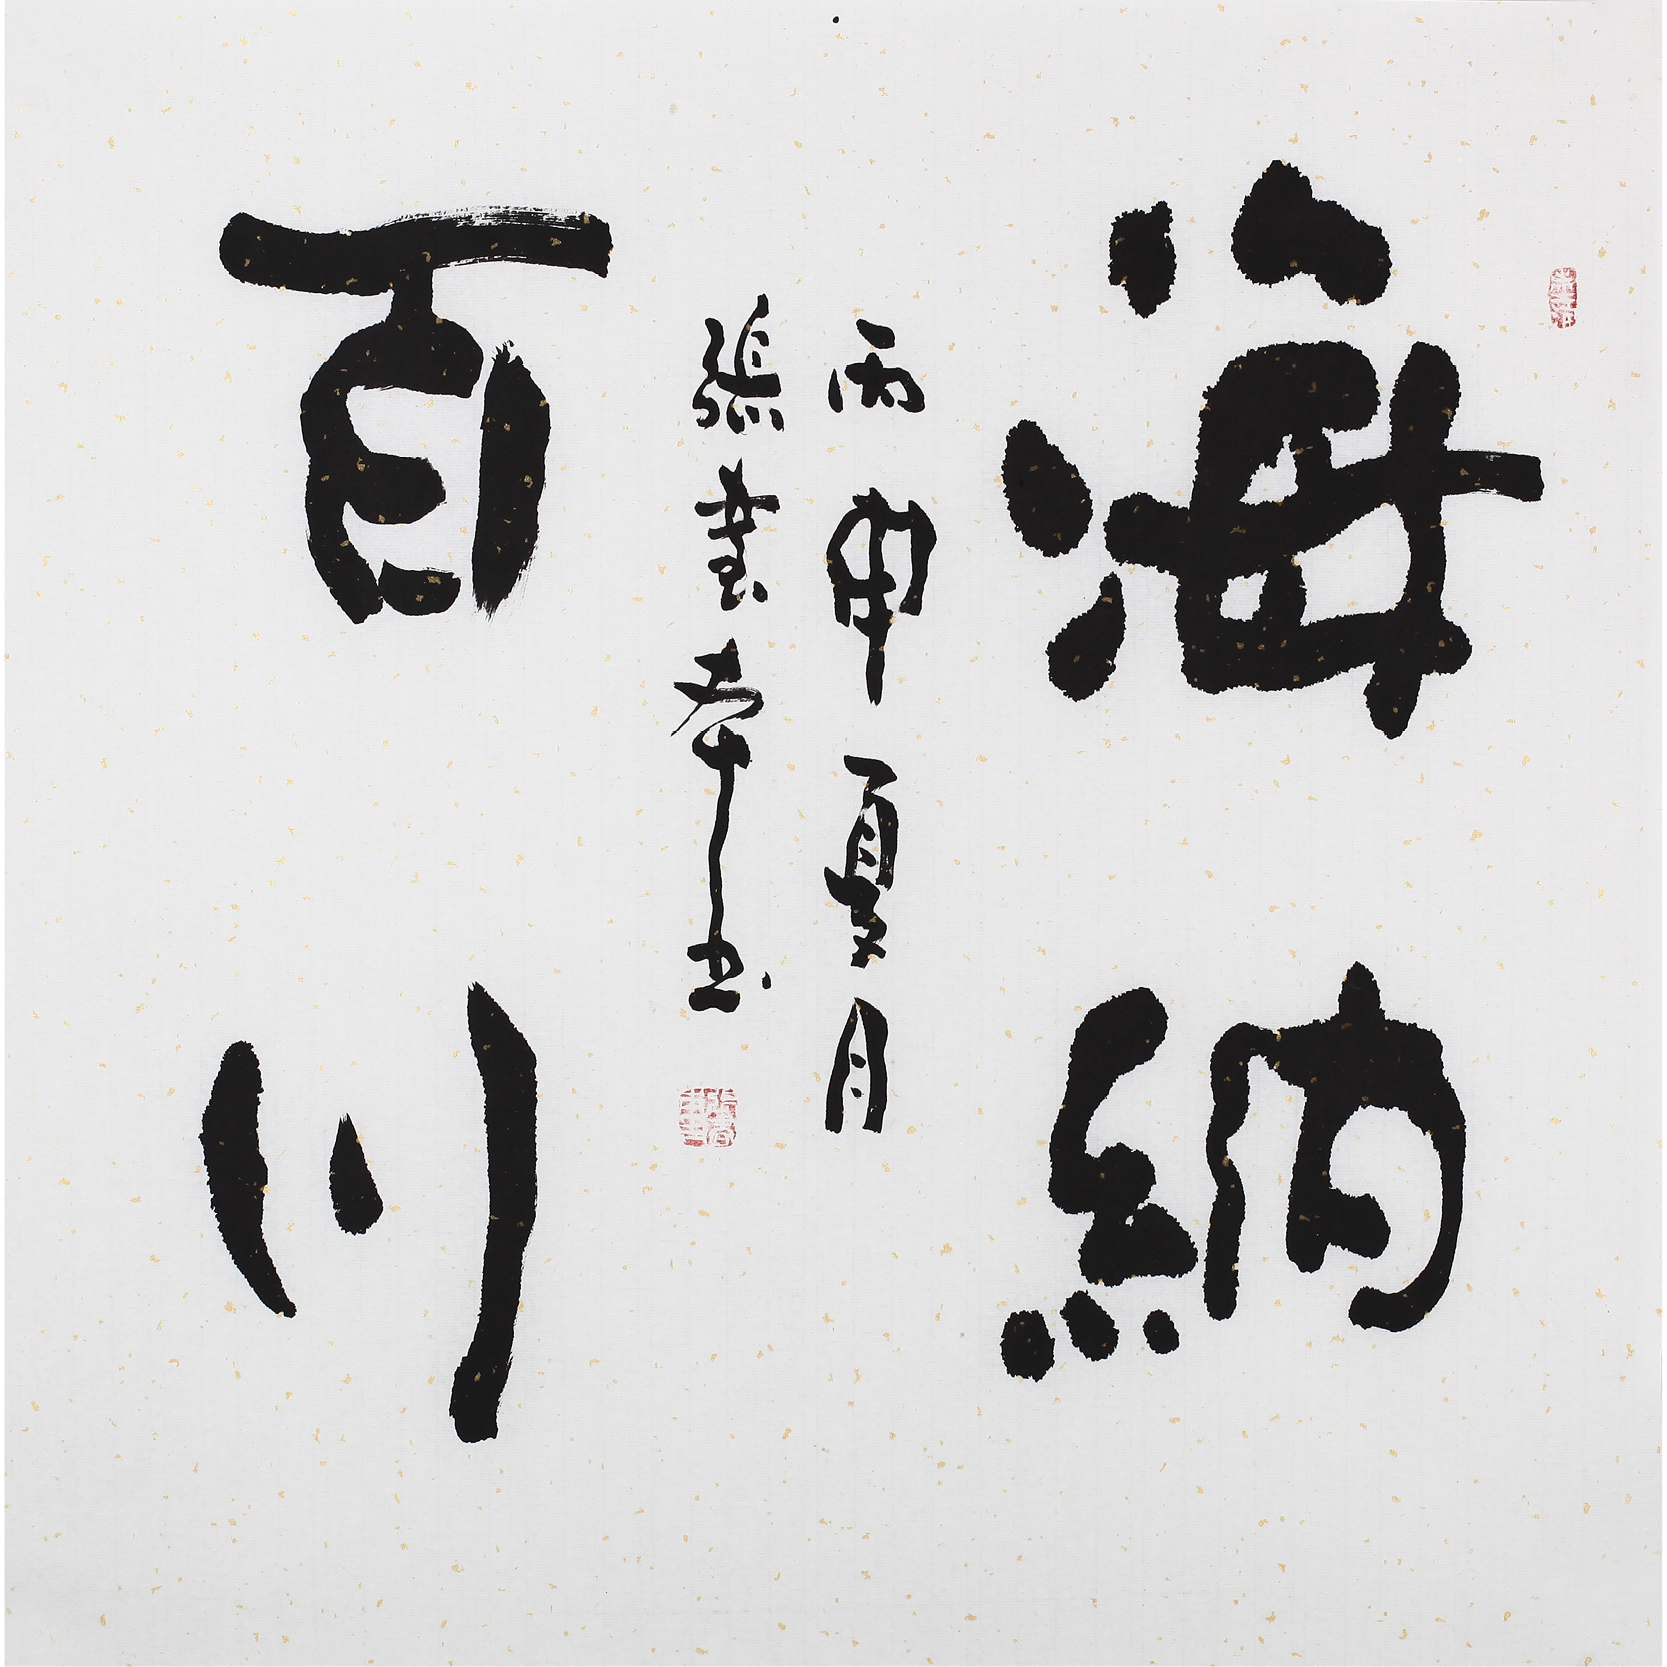 海納
百川
丙申夏月
張書本书